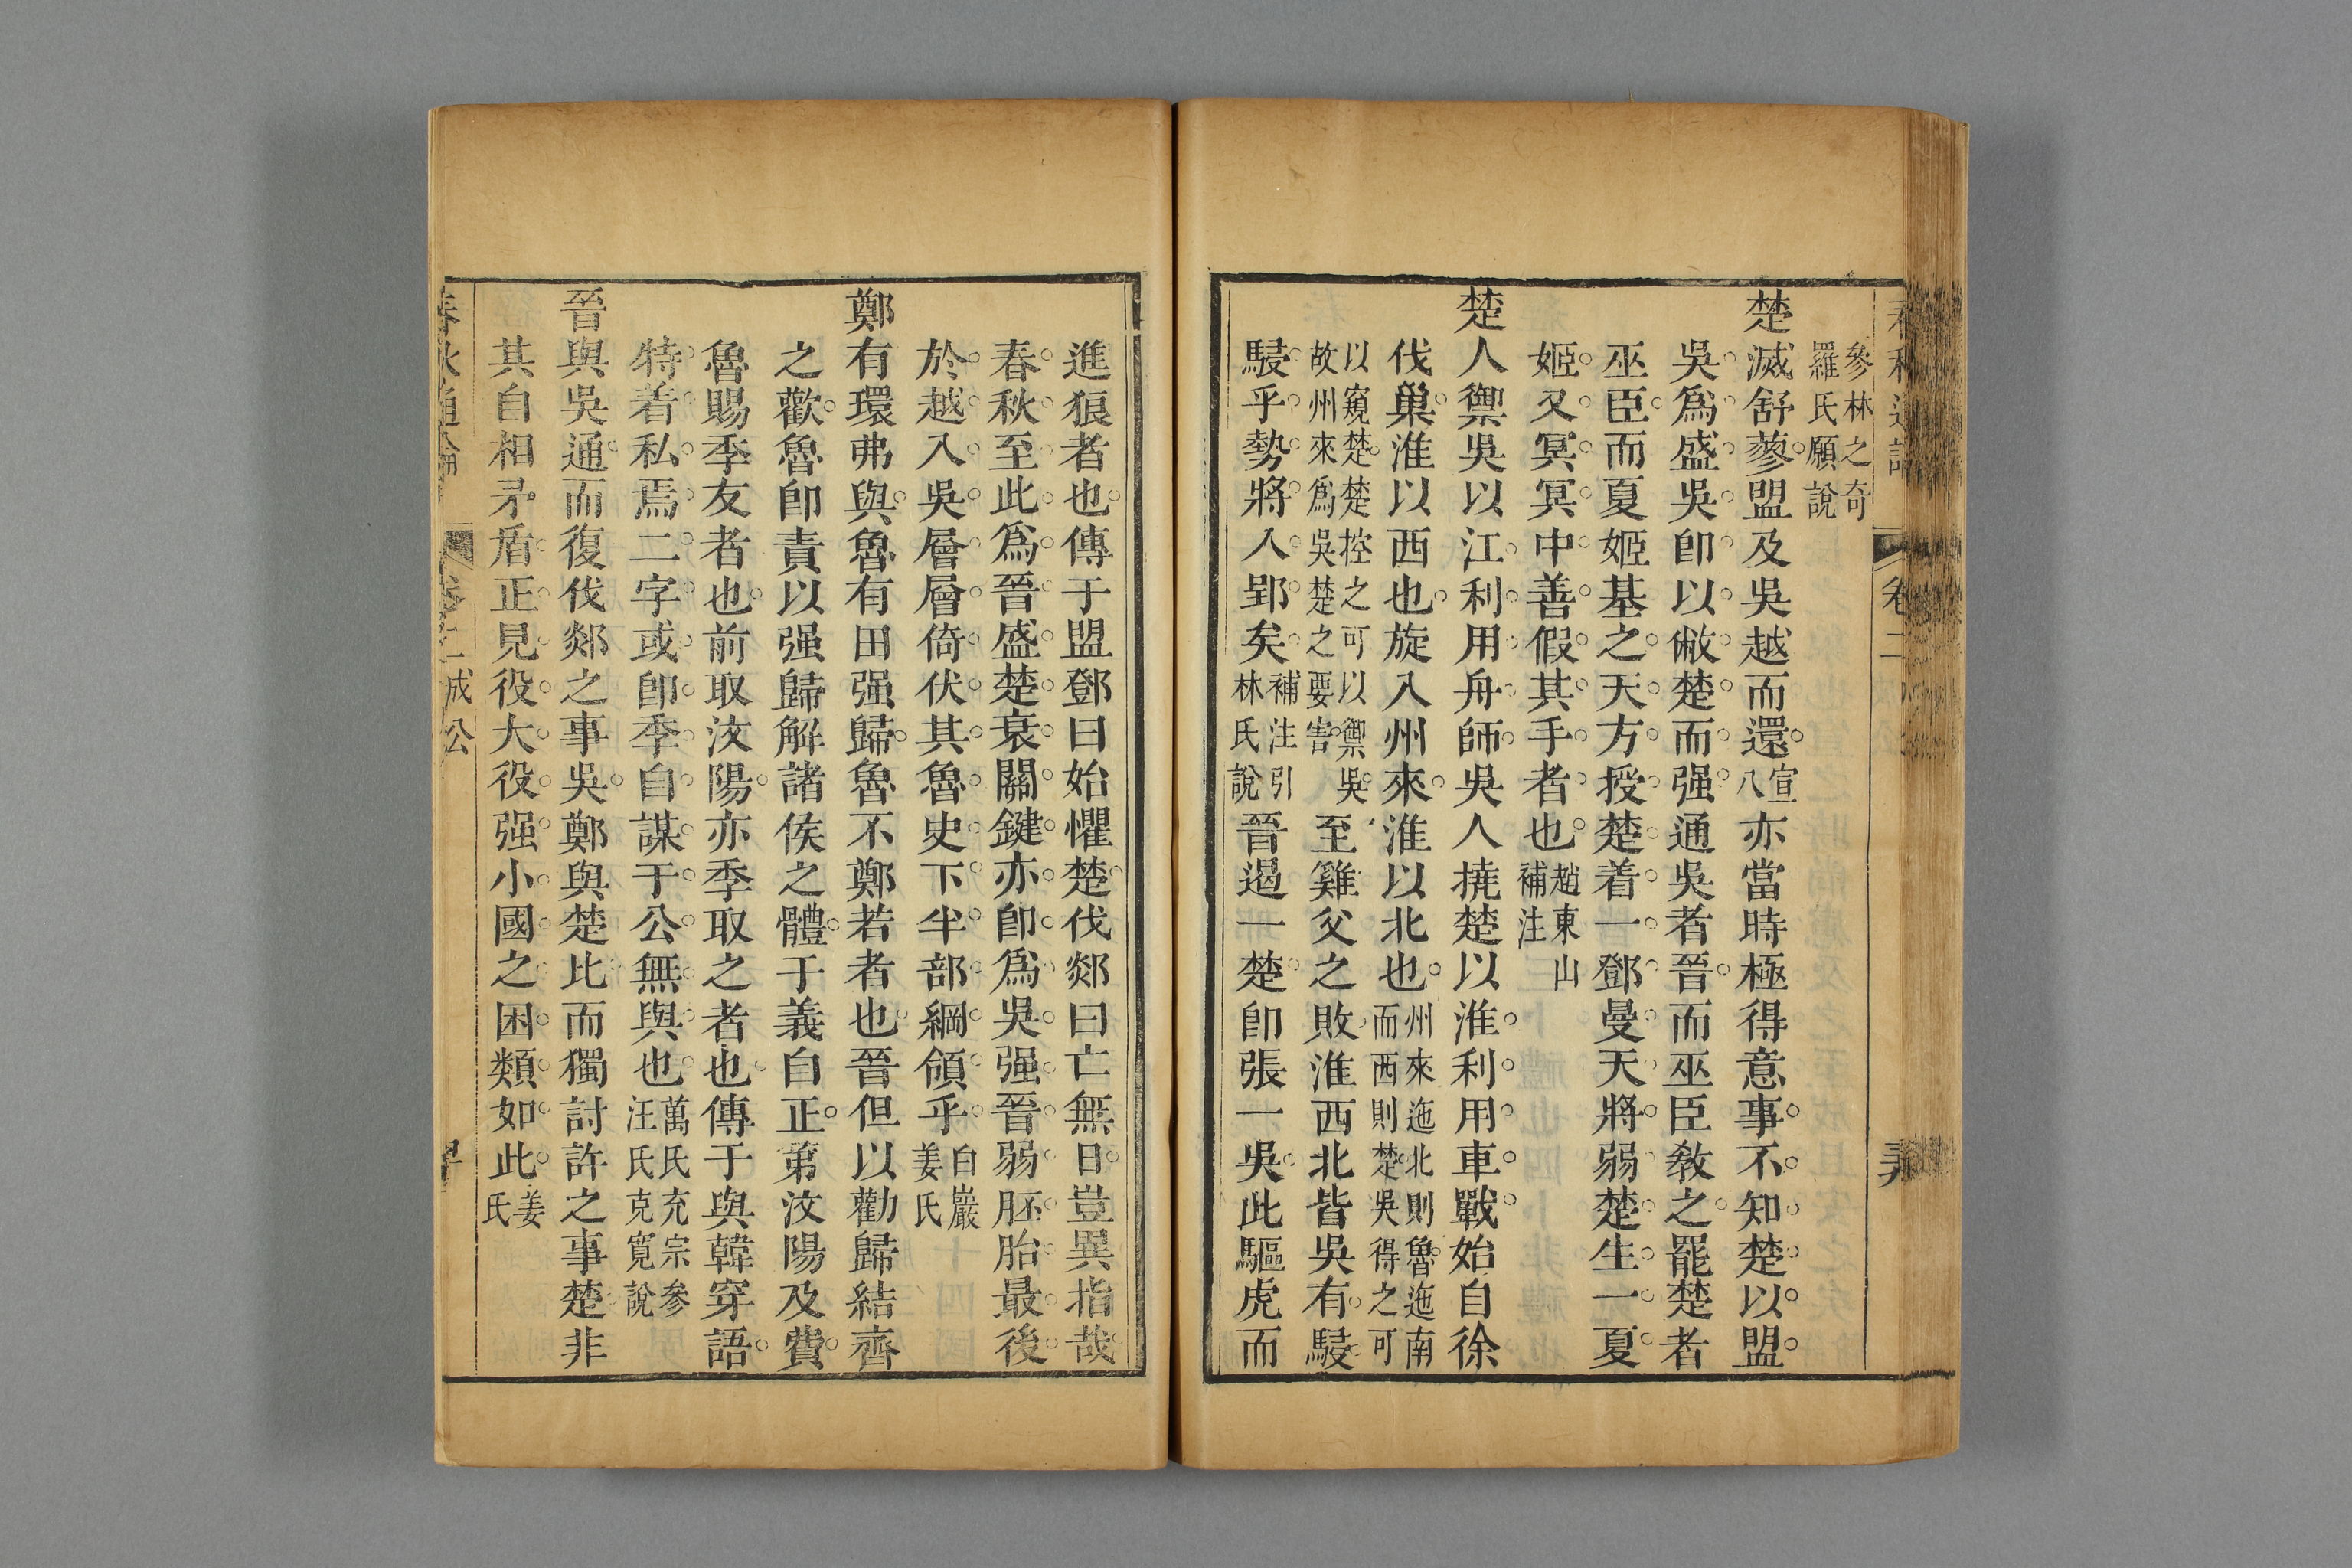 參林之奇
羅氏願說
楚滅舒蓼盟及吳越而還宣八亦當時極得意事不知楚以盟
吳爲盛吳卽以敝楚而强通吳者晉而巫臣敎之罷楚者
巫臣而夏姬基之天方授楚着一鄧曼天將弱楚生一夏
姬又冥冥中善假其手者也趙東山補注
楚人禦吳以江利用舟師吳人撓楚以淮利用車戰始自徐
伐巢淮以西也旋入州來淮以北也州來迤北則魯迤南而西則楚吳得之可
以窺楚楚控之可以禦吳故州來爲吳楚之要害至雞父之敗淮西北皆吳有駸
駸乎勢將入郢矣補注引林氏說晉遏一楚卽張一吳此驅虎而
進狼者也傳于盟鄧曰始懼楚伐郯曰亡無日豈異指哉
春秋至此爲晉盛楚衰關鍵亦卽爲吳强晉弱胚胎最後
於越入吳層層倚伏其魯史下半部綱領乎白巖姜氏
鄭有環弗與魯有田强歸魯不鄭若者也晉但以勸歸結齊
之歡魯卽責以强歸解諸侯之體于義自正第汶陽及費
魯賜季友者也前取汶陽亦季取之者也傳于與韓穿語
特着私焉二字或卽季自謀于公無與也萬氏充宗參汪氏克寬說
晉與吳通而復伐郯之事吳鄭與楚比而獨討許之事楚非
其自相矛盾正見役大役强小國之困類如此姜氏
卷二 成公